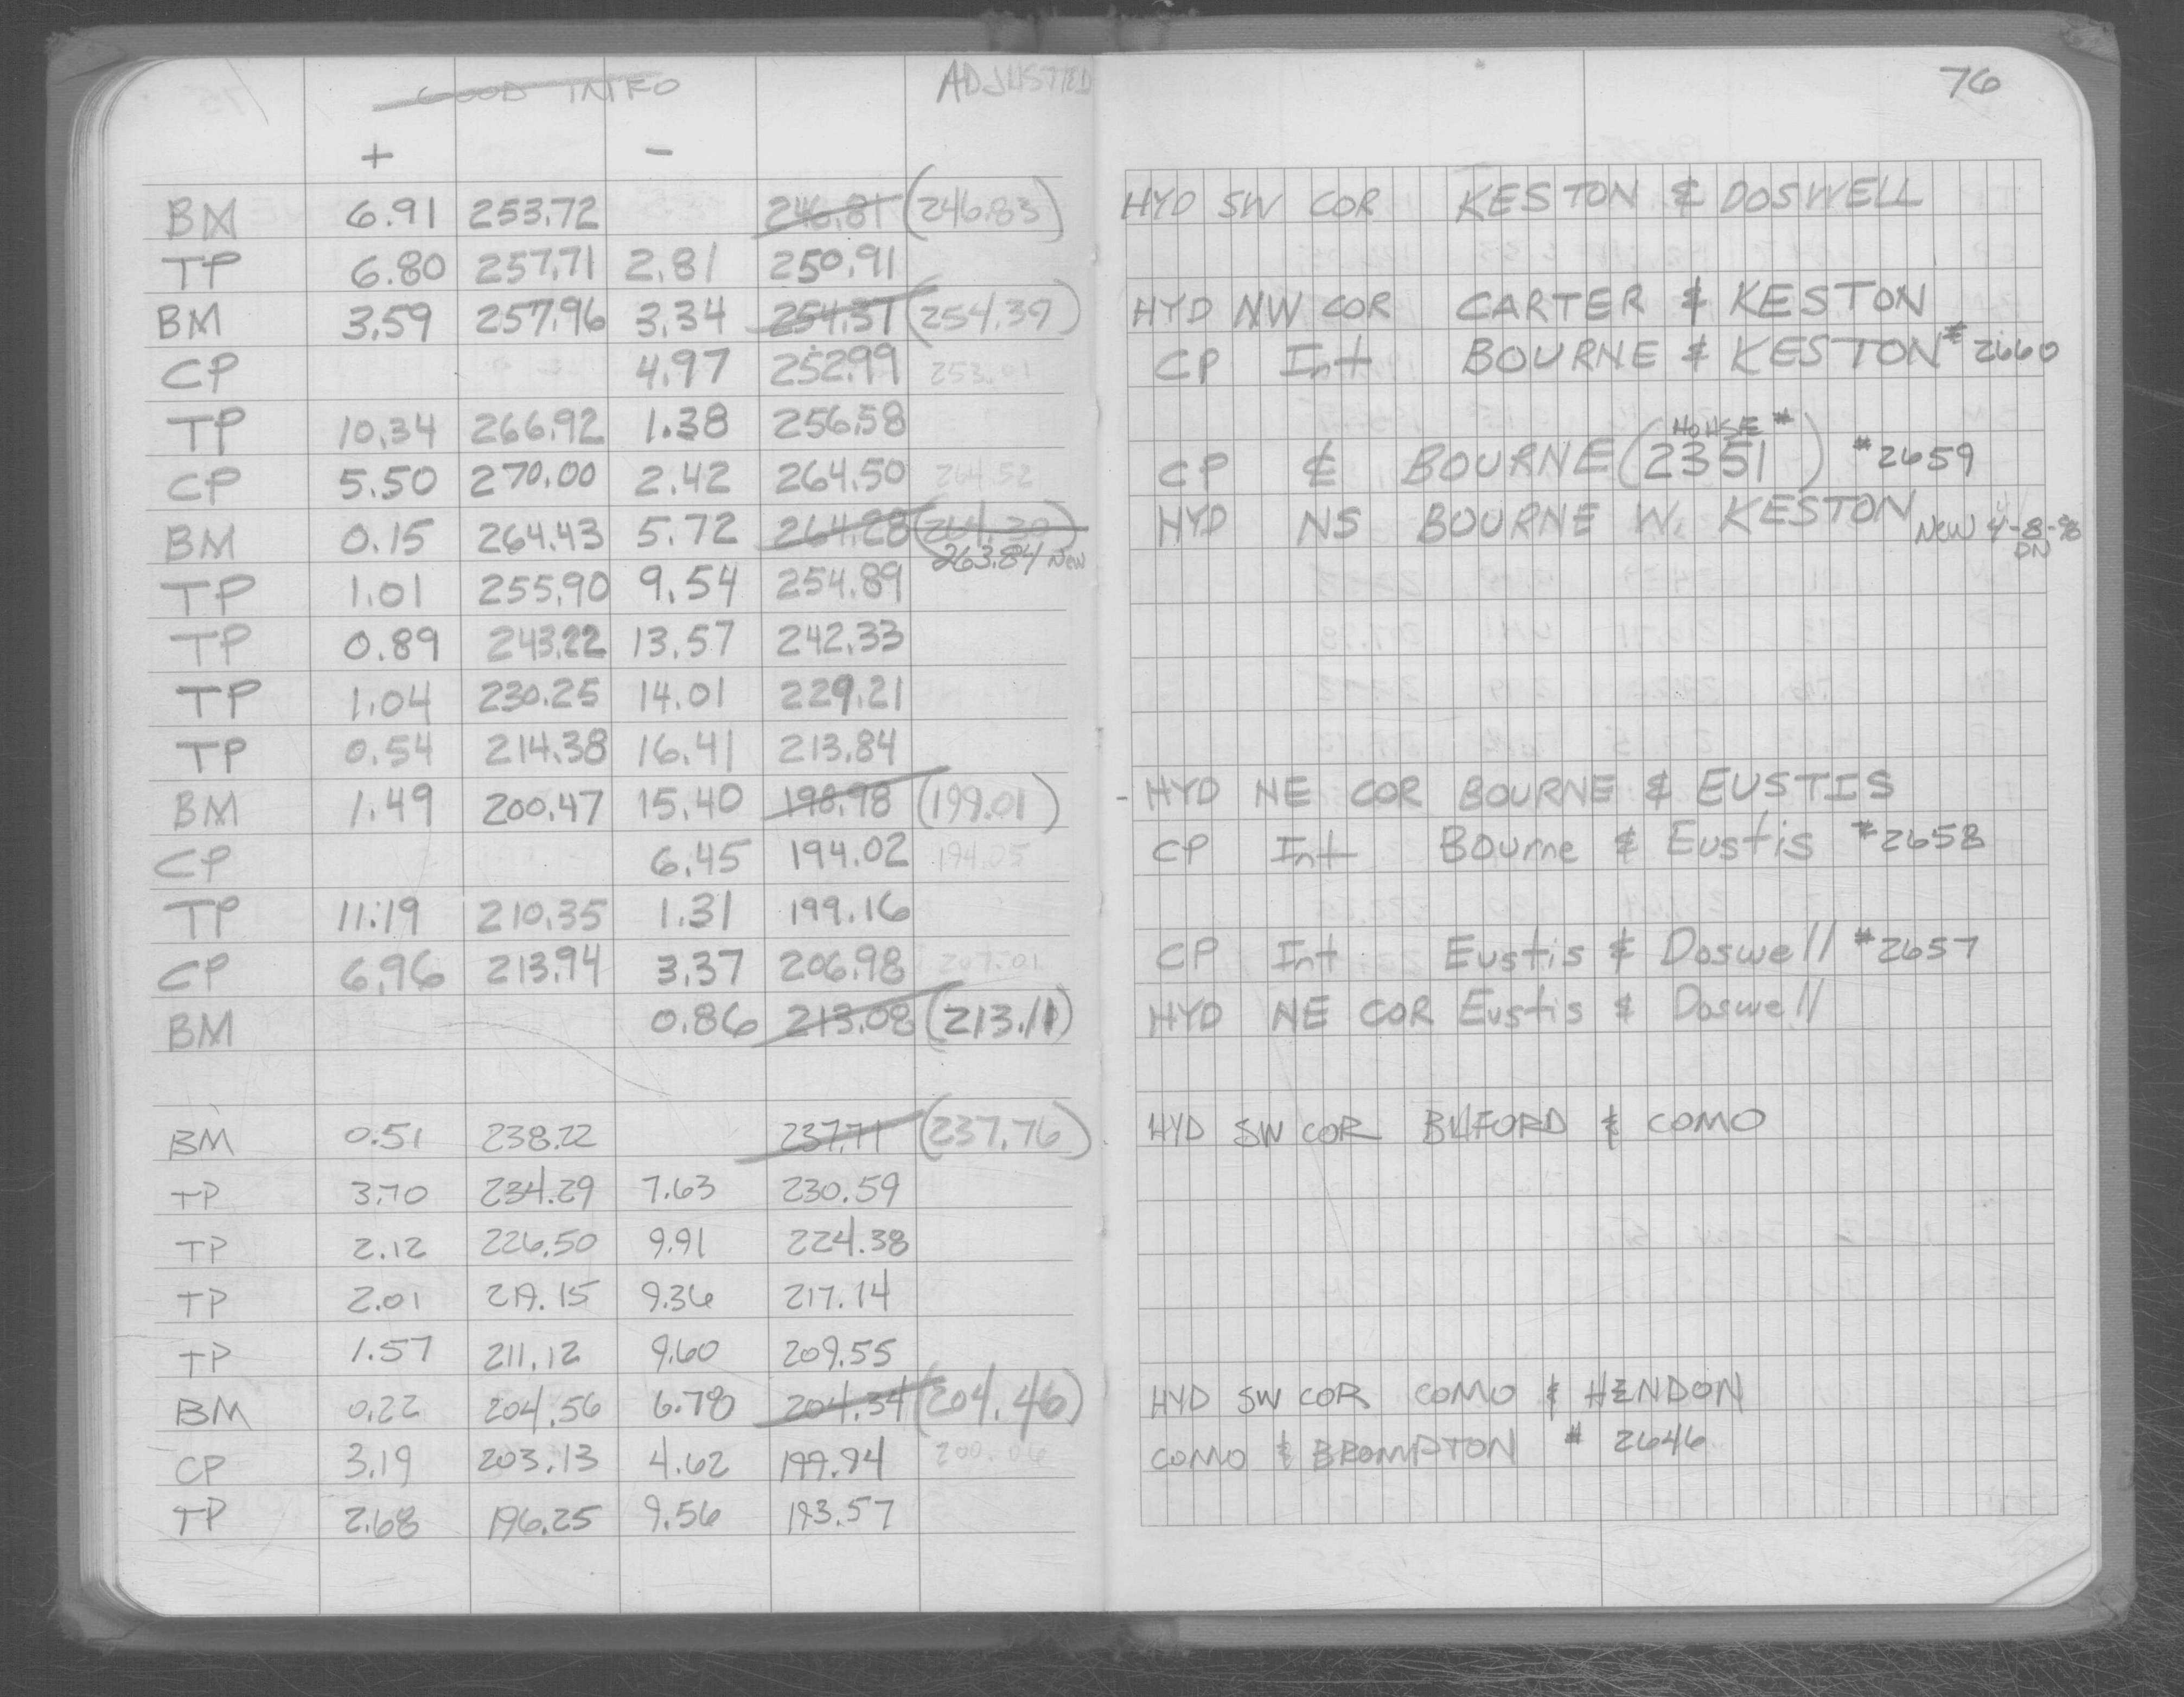 GOOD INFO ADJUSTED 76
+ -
BM 6.91 253.72 246.81 (246.83) HYD SW COR KESTON & DOSWELL
TP 6.80 257.71 2.81 250.91
BM 3.59 257.96 3.34 254.37 (254.39) HYD NW COR CARTER & KESTON
CP 4.97 252.99 253.01 CP Int BOURNE & KESTON #2660
TP 10.34 266.92 1.38 256.58
HOUSE #
CP 5.50 270.00 2.42 264.50 264.52 CP ℄ BOURNE (2351) #2659
BM 0.15 264.43 5.72 264.28 (264.30) HYD NS BOURNE W. KESTON New 4-8-98
263.84 New DN
TP 1.01 255.90 9.54 254.89
TP 0.89 243.22 13.57 242.33
TP 1.04 230.25 14.01 229.21
TP 0.54 214.38 16.41 213.84
BM 1.49 200.47 15.40 198.98 (199.01) - HYD NE COR BOURNE & EUSTIS
CP 6.45 194.02 194.05 CP Int Bourne & Eustis #2658
TP 11.19 210.35 1.31 199.16
CP 6.96 213.94 3.37 206.98 207.01 CP Int Eustis & Doswell #2657
BM 0.86 213.08 (213.11) HYD NE COR Eustis & Doswell
BM 0.51 238.22 237.71 (237.76) HYD SW COR BUFORD & COMO
TP 3.70 234.29 7.63 230.59
TP 2.12 226.50 9.91 224.38
TP 2.01 219.15 9.36 217.14
TP 1.57 211.12 9.60 209.55
BM 0.22 204.56 6.78 204.34 (204.46) HYD SW COR COMO & HENDON
CP 3.19 203.13 4.62 199.94 200.06 COMO & BROMPTON # 2646
TP 2.68 196.25 9.56 193.57